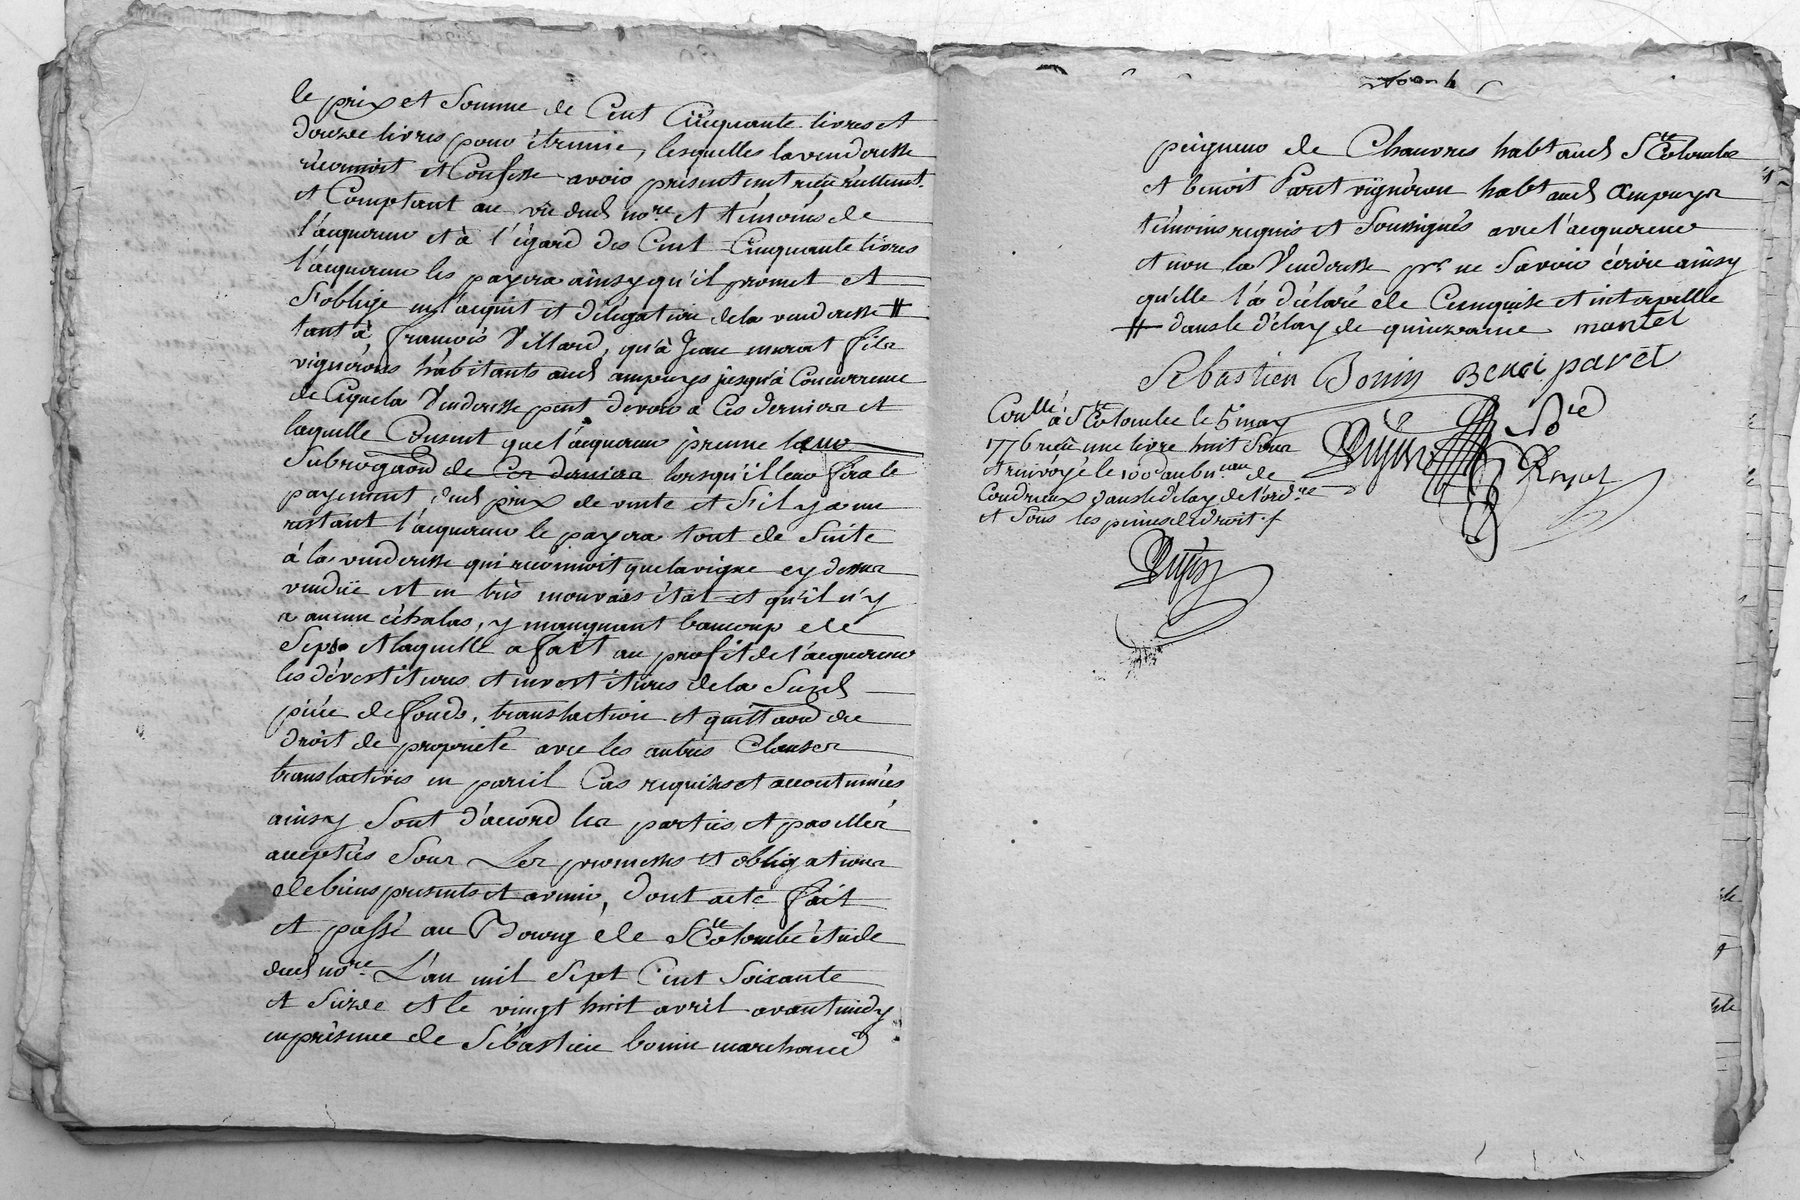 le prix et Somme de Cent Cinquante livres et
douze livres pour étrenne, lesquelles la venderesse
reconnoit et Confesse avoir présentement reçu réellemt.
et Comptant au vû dud nore. et témoins de
l'acquereur et à l'égard des Cent Cinquante livres
l'acquereur les payera ainsy qu'il promet et
S'oblige en l'acquit et délégation de la venderesse #
tant à François Villard, qu'à Jean murat fils
vignérons habitants aud ampuys jusqu'à Concurrence
de Ceque la Venderesse peut devoir à Ces derniers et
laquelle Consent que l'acquereur prenne leur
Subrogaõn de Ces derniers lorsqu'il leur fera le
payement dud prix de vente et S'il y a un
restant l'acquereur le payera tout de Suite
à la venderesse qui reconnoit que la vigne cy dessus
vendüe est en très mauvais état et qu'il n'y
a aucun échalas, y manquant beaucoup de
Seps et laquelle a fait au profit de l'acquereur
les dévestitures et investitures de la Susd
pièce de fonds, translation et quittaõn du
droit de proprieté avec les autres Clauses
translatives en pareil Cas requises et accoutumées
ainsy Sont d'accord les parties et par elles
acceptés Sous Les promesses et obligations
de biens presents et avenir, dont acte fait
et passé au Bourg de Ste Colombe étude
dud nore. L'an mil Sept Cent Soixante
et Seize et le vingt huit avril avant midy
en présence de Sébastien bonin marchand
peigneur de Chanvres habt aud Ste Colombe
et benoit Paret vignéron habt aud Ampuys
témoins requis et Soussignés avec l'acquereur
et non la Venderesse pr ne Savoir écrire ainsy
qu'elle l'a déclaré de Ce enquise et interpellée
# dans le délay de quinzaine martel
Sebastien Bonin Benoi paret
Conllé. à Ste Colombe le 5 may
1776 reçu une livre huit Sous
et renvoyé le 100e au bureau de
Condrieux dans le délay de l'ordre
et Sous les peines de droit.